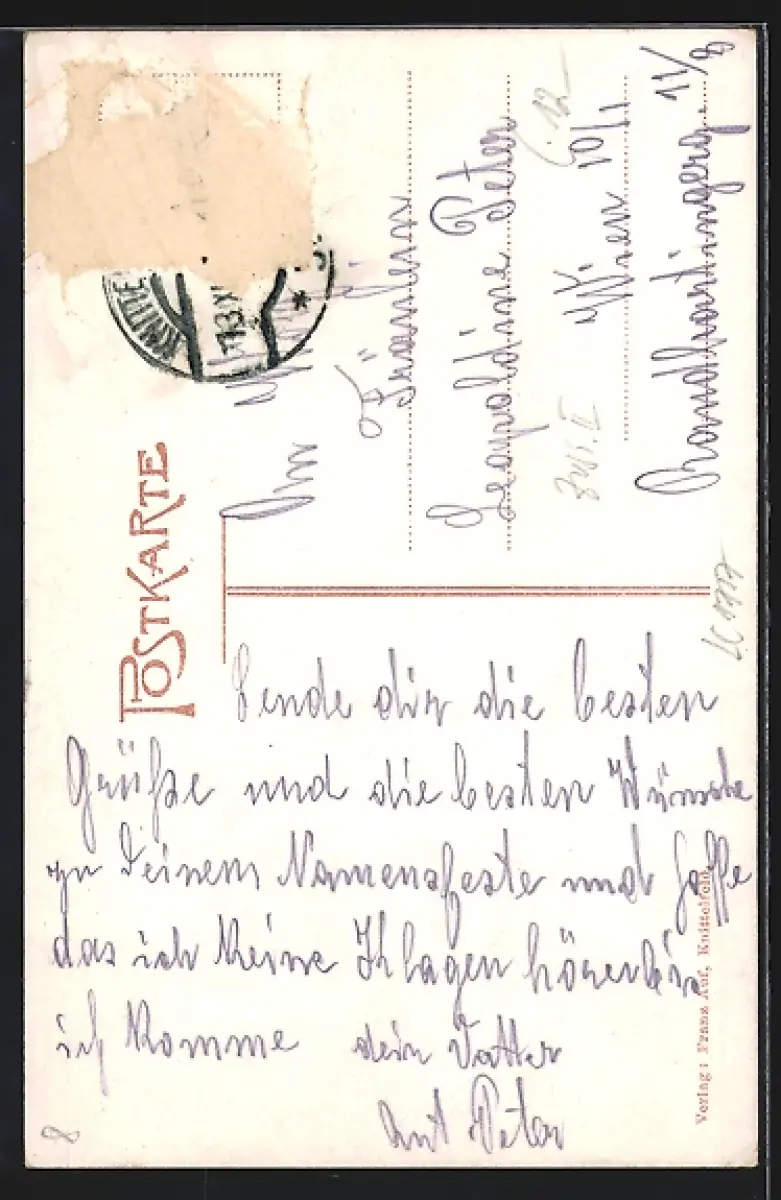 POSTKARTE
KNITTE
An
Fräulein
Leopoldine Peter
Wien 10/1
Randhartingerg. 11/8
12
LC 1717
Sende dir die besten
Grüße und die besten Wünsche
zu deinem Namensfeste und hoffe
das ich keine Klagen höre bis
ich komme dein Vatter
Ant Peter
8
Verlag: Franz Auf, Knittelfeld.